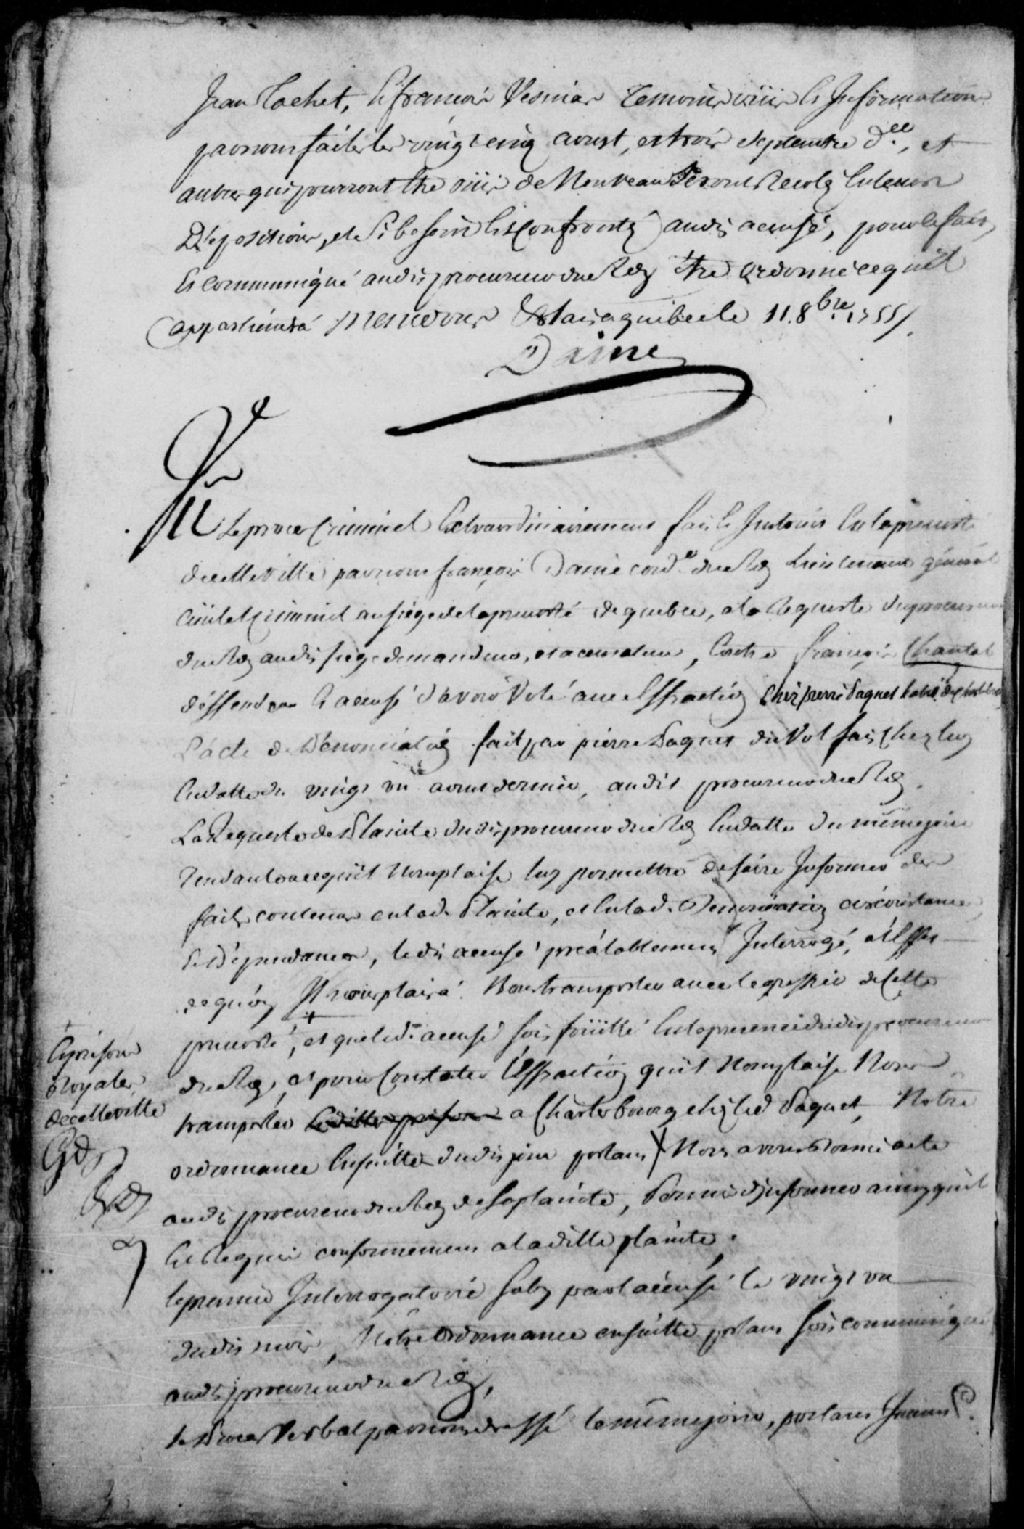 Jean Rochet, & françois Vesinas temoins ouïs Es Informations
par nous faites les vingt cinq aoust, et trois septembre d.er, et
autres qui pourront être ouïs de Nouveau Seront Recolé En leurs
Dépositions, et si besoin Est Confronté audit accusé, pour le fait,
Et communiqué audit procureur du Roy être ordonné ce quil
appartiendra Mandons & fait a quebec le 11. 8bre. 1755/.
Daine
Vu
Le procès Criminel Extraordinairement fait & Instruit En la prevosté
de cette ville par nous françois Daine cons.er du Roy Lieutenant général
Civil et Criminel au siége de la prevosté de quebec, a la Requeste du procureur
du Roy audit siége demandeur, et accusateur, Contre françois Chantal
déffendeur & accusé d'avoir Volé avec Effraction Chez pierre Paquet habit. de
L'acte de Dénonciation fait par pierre Paquet du Vol fait Chez luy
En datte du vingt un aoust dernier, audit procureur du Roy.
La Requeste de Plainte dudit procureur du Roy En datte du même jour
Tendante a ce qu'il Nous plaise luy permettre de faire Informer des
faits contenus en lad. Plainte, et En lad. Denonciation circonstances
& Dépendances, ledit accusé préalablement Interrogé, a l'Effet
de quoy Il nous plaira Nous transporter avec le greffier de Cette
prevosté, et que led. accusé soit fouillé En la presence dudit procureur
du Roy, et pour Constater L'Effraction qu'il Nous plaise Nous
transporter Esdittes prisons a Charlesbourg chez led Paquet, Notre
ordonnance Ensuitte dudit jour portant Nous avons donné acte
audit procureur du Roy de sa plainte, Permis d'Informer ainsy quil
Est Requis conformement a laditte plainte.
Le premier Interrogatoire Suby par l'accusé le vingt un
dudit mois, Notre ordonnance ensuitte portant soit communiqué
audit procureur du Roy,
Le Procès Verbal par nous dressé le même jour, portant
Es prisons
Royales
de cette ville